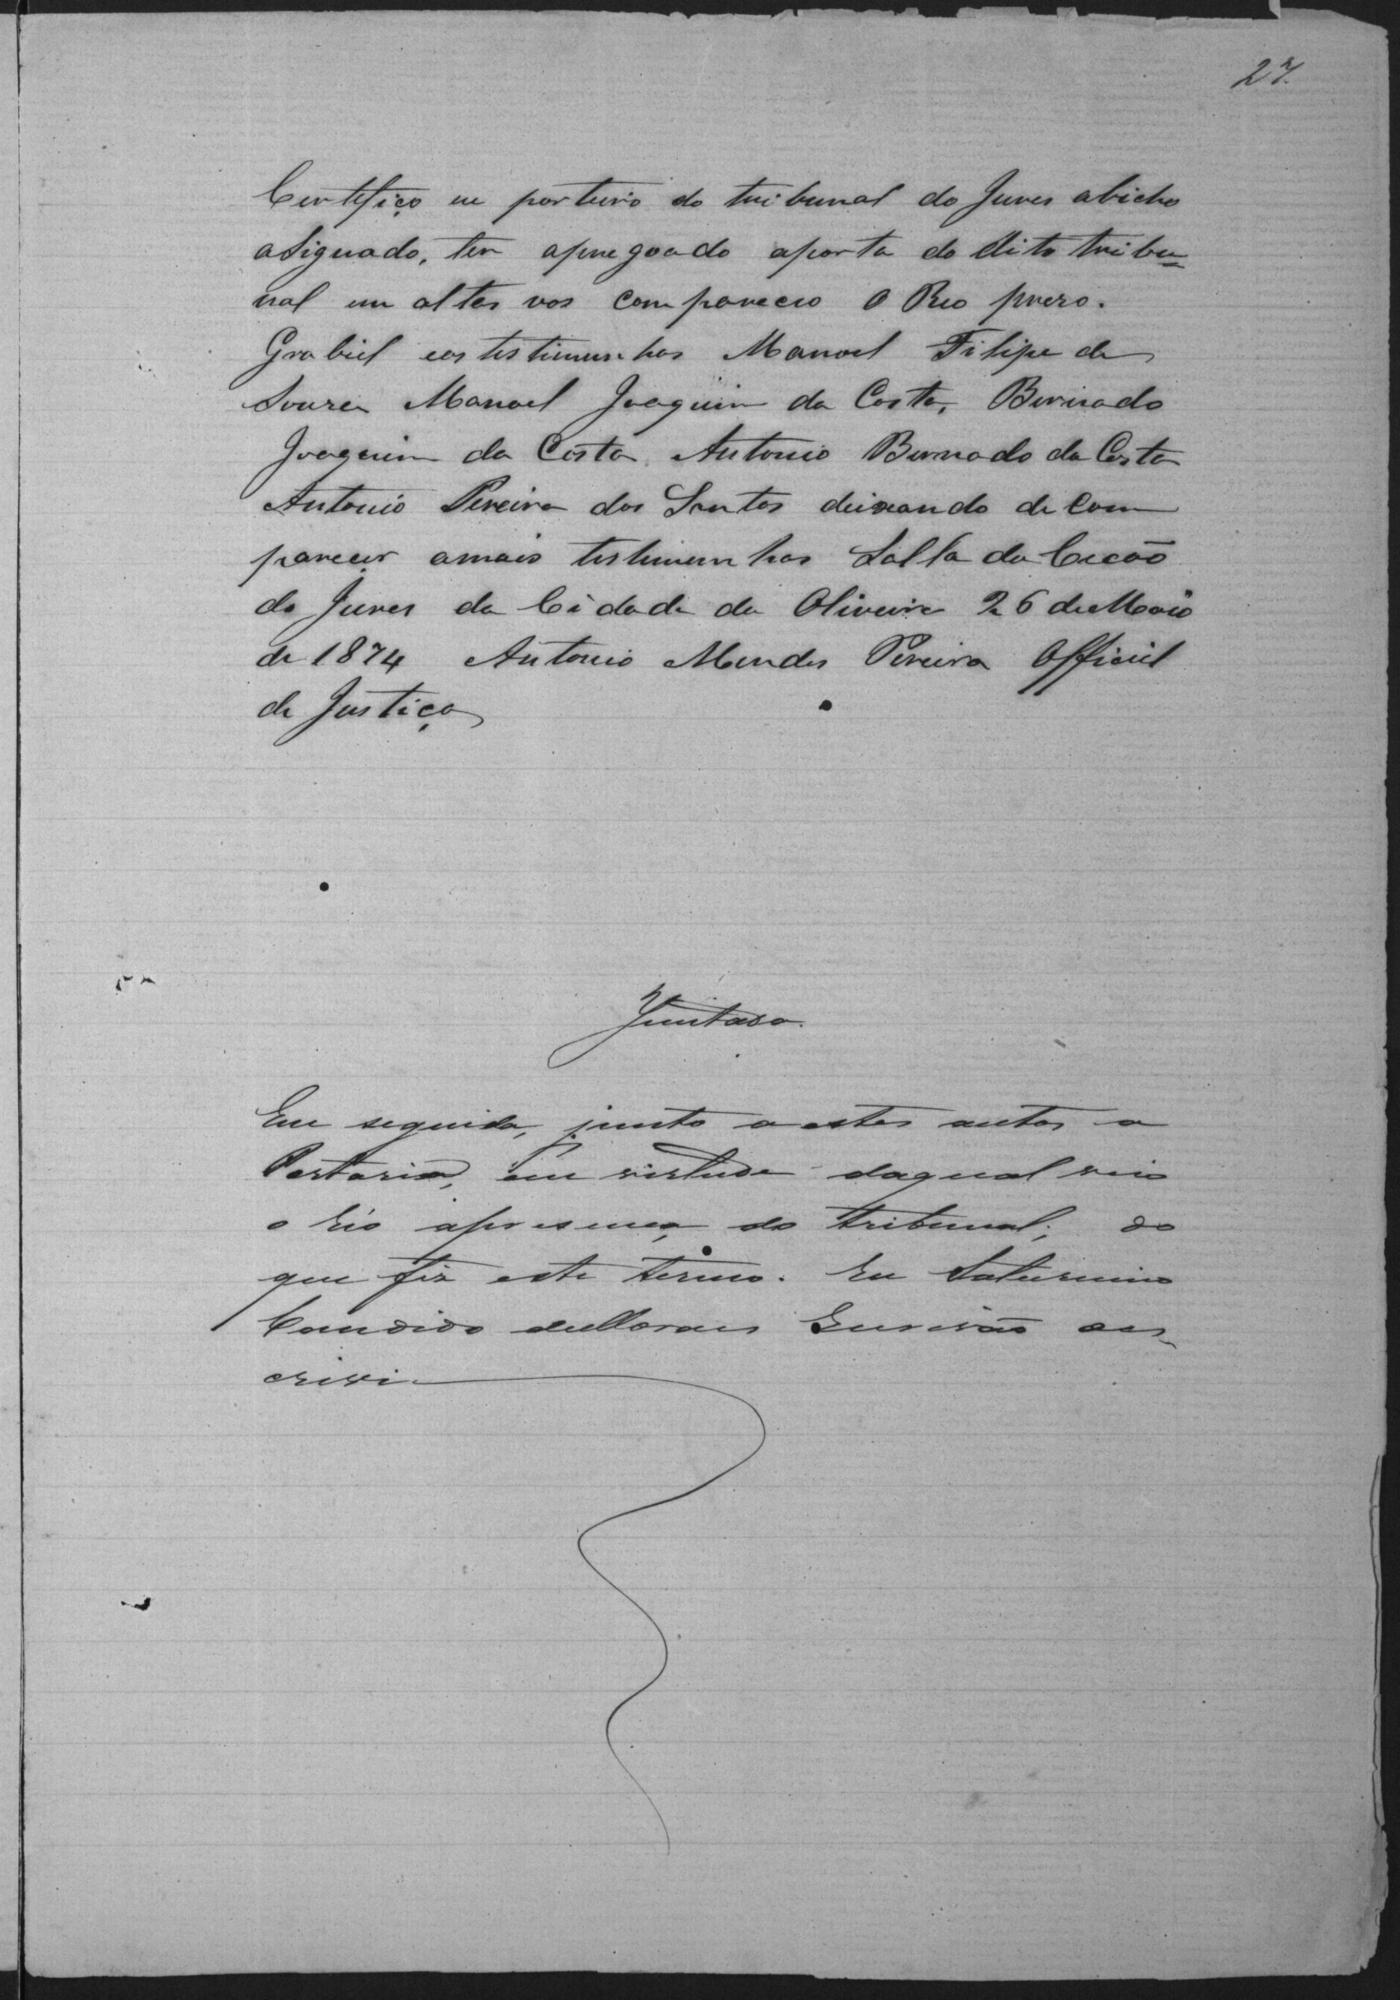 27.
Certifiço eu porteiro do tribunal do Jures abicho
asignado, ter apregoado aporta do dito tribu=
nal em altas vos compareceo o Reo prezo.
Grabiel eas testimunhas Manoel Filipe de
Souza Manoel Joaquim da Costa, Bernado
Joaquim da Costa Antonio Bernado da Costa
Antonio Pereira dos Santos deixando de com
parecer amais testimunhas Salla da Cecão
do Jures da Cidade da Oliveira 26 de Maio
de 1874 Antonio Mendes Pereira Official
de Justiça
Juntada.
Em seguida, junto a estes autos a
Portaria, em virtude daqual veio
o réo apresença do tribunal; do
que fiz este termo. Eu Saturnino
Candido de Moraes Escrivão o es-
crivi